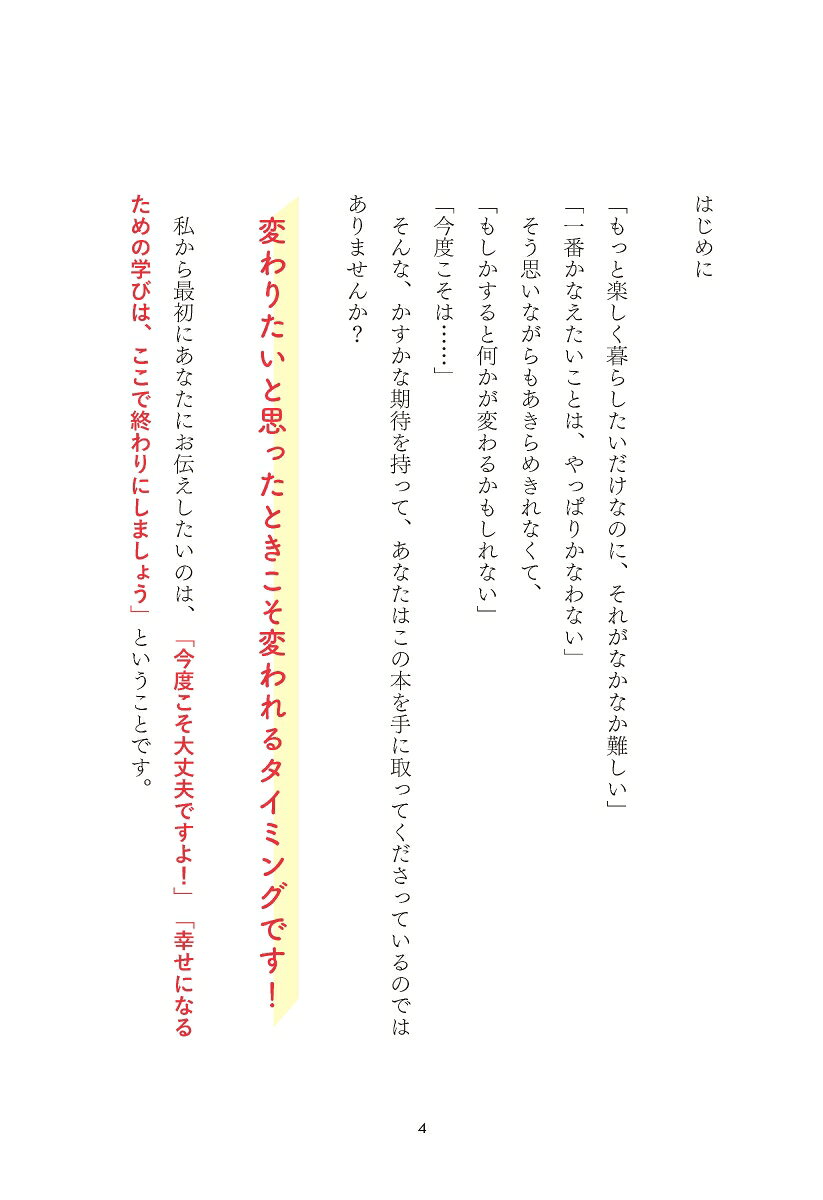 はじめに
「もっと楽しく暮らしたいだけなのに、それがなかなか難しい」
「一番かなえたいことは、やっぱりかなわない」
そう思いながらもあきらめきれなくて、
「もしかすると何かが変わるかもしれない」
「今度こそは……」
そんな、かすかな期待を持って、あなたはこの本を手に取ってくださっているのでは
ありませんか？
変わりたいと思ったときこそ変われるタイミングです！
私から最初にあなたにお伝えしたいのは、「今度こそ大丈夫ですよ！」「幸せになる
ための学びは、ここで終わりにしましょう」ということです。
4